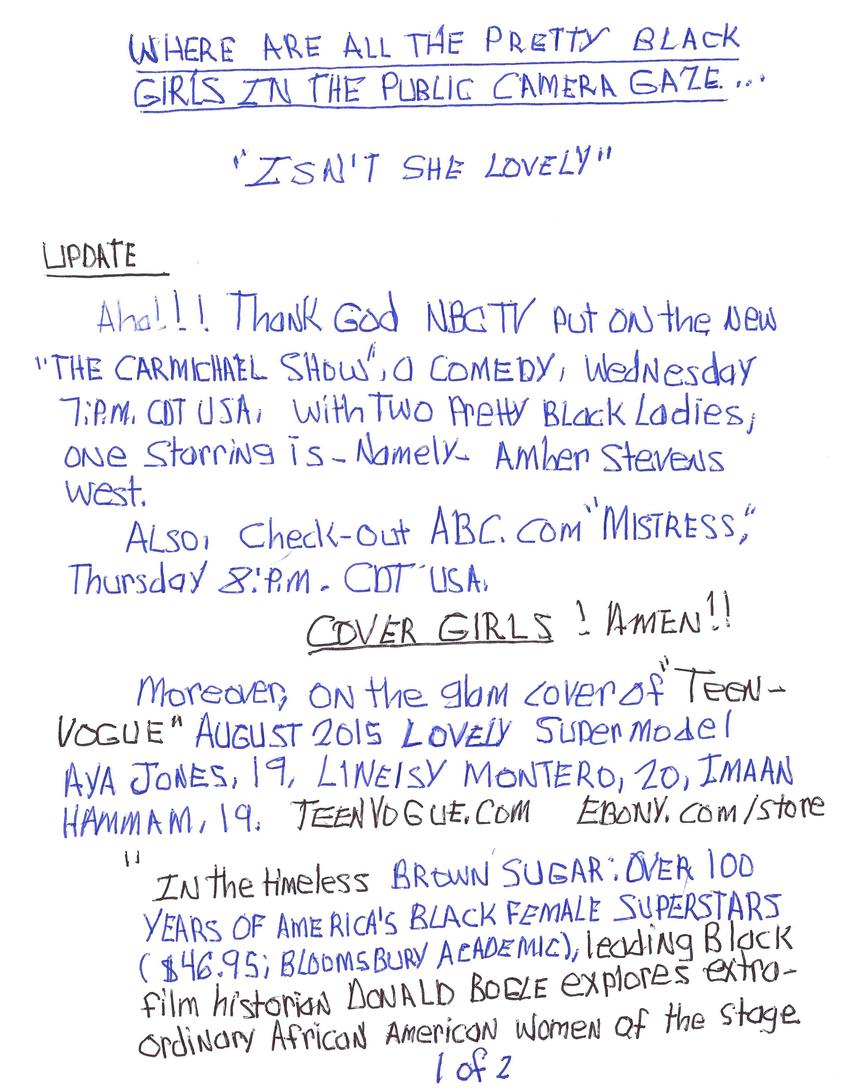 WHERE ARE ALL THE PRETTY BLACK
GIRLS IN THE PUBLIC CAMERA GAZE...
"ISN'T SHE LOVELY"
UPDATE
Aha!!! Thank God NBC TV put on the new
"THE CARMICHAEL SHOW", a COMEDY, Wednesday
7:P.M. CDT USA, with Two Pretty Black Ladies,
one Starring is - Namely - Amber Stevens
West.
ALSO, Check-out ABC.com "MISTRESS,"
Thursday 8:P.M. CDT USA.
COVER GIRLS ! AMEN!!
Moreover, on the glam cover of "TEEN-
VOGUE" AUGUST 2015 LOVELY Supermodel
AYA JONES, 19, LINEISY MONTERO, 20, IMAAN
HAMMAM, 19. TEENVOGUE.COM EBONY.com/store
"IN the timeless BROWN SUGAR: OVER 100
YEARS OF AMERICA'S BLACK FEMALE SUPERSTARS
($46.95; BLOOMSBURY ACADEMIC), leading Black
film historian DONALD BOGLE explores extra-
ordinary African American women of the stage
1 of 2